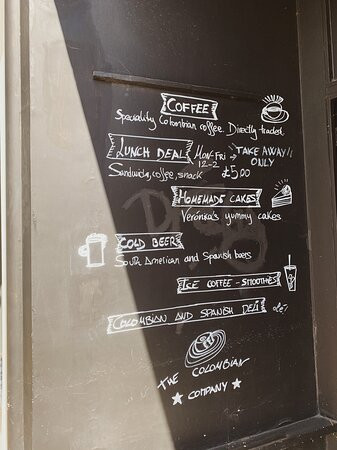 COFFEE
Speciality Colombian coffee. Directly traded.
LUNCH DEAL MON-FRI 12-2 → TAKE AWAY!! ONLY
Sandwich, coffee, snack £5.00
HOMEMADE CAKES
Veronika's yummy cakes
COLD BEER
South American and Spanish beers
ICE COFFEE - SMOOTHIES
COLOMBIAN AND SPANISH DELI olé!
THE COLOMBIAN
COMPANY